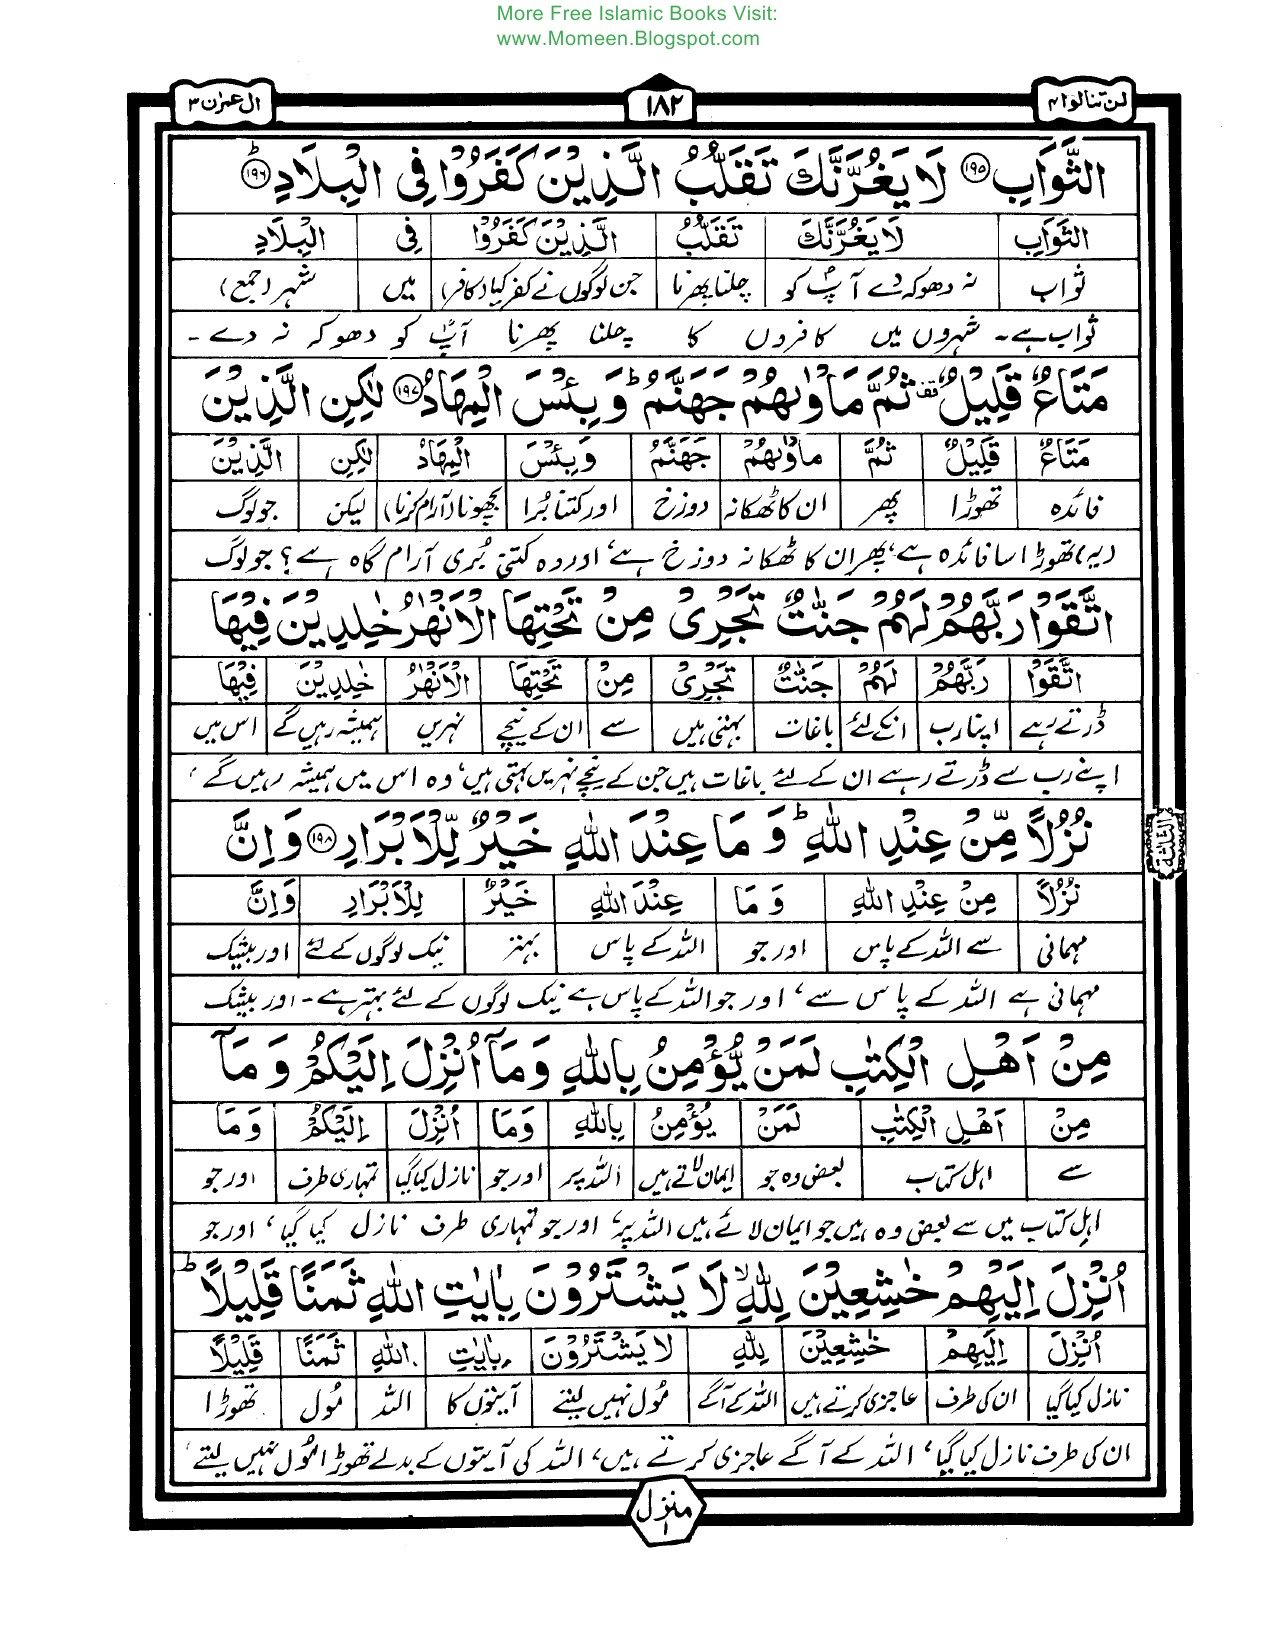 More Free Islamic Books Visit:
www.Momeen.Blogspot.com
لن تنالوا ۴ ۱۸۲ ال عمرٰن ۳
الثَّوَابِ ۝۱۹۵ لَا يَغُرَّنَّكَ تَقَلُّبُ الَّذِيْنَ كَفَرُوْا فِى الْبِلَادِ ۝۱۹۶ؕ
الثَّوَابِ لَا يَغُرَّنَّكَ تَقَلُّبُ الَّذِيْنَ كَفَرُوْا فِى الْبِلَادِ
ثواب نہ دھوکہ دے آپؐ کو چلنا پھرنا جن لوگوں نے کفر کیا (کافر) میں شہر (جمع)
ثواب ہے۔ شہروں میں کافروں کا چلنا پھرنا آپؐ کو دھوکہ نہ دے۔
مَتَاعٌ قَلِيْلٌ ۣ ثُمَّ مَاْوٰىهُمْ جَهَنَّمُ ؕ وَبِئْسَ الْمِهَادُ ۝۱۹۷ لٰكِنِ الَّذِيْنَ
مَتَاعٌ قَلِيْلٌ ثُمَّ مَاْوٰىهُمْ جَهَنَّمُ وَبِئْسَ الْمِهَادُ لٰكِنِ الَّذِيْنَ
فائدہ تھوڑا پھر ان کا ٹھکانہ دوزخ اور کتنا بُرا بچھونا (آرام کرنا) لیکن جو لوگ
(یہ) تھوڑا سا فائدہ ہے، پھر ان کا ٹھکانہ دوزخ ہے، اور وہ کتنی بُری آرام گاہ ہے؟ جو لوگ
اتَّقَوْا رَبَّهُمْ لَهُمْ جَنّٰتٌ تَجْرِىْ مِنْ تَحْتِهَا الْاَنْهٰرُ خٰلِدِيْنَ فِيْهَا
اتَّقَوْا رَبَّهُمْ لَهُمْ جَنّٰتٌ تَجْرِىْ مِنْ تَحْتِهَا الْاَنْهٰرُ خٰلِدِيْنَ فِيْهَا
ڈرتے رہے اپنا رب انکے لئے باغات بہتی ہیں سے ان کے نیچے نہریں ہمیشہ رہیں گے اس میں
اپنے رب سے ڈرتے رہے ان کے لئے باغات ہیں جن کے نیچے نہریں بہتی ہیں، وہ اس میں ہمیشہ رہیں گے،
نُزُلًا مِّنْ عِنْدِ اللّٰهِ ؕ وَمَا عِنْدَ اللّٰهِ خَيْرٌ لِّلْاَبْرَارِ ۝۱۹۸ وَاِنَّ
الثلثة
نُزُلًا مِنْ عِنْدِ اللّٰهِ وَمَا عِنْدَ اللّٰهِ خَيْرٌ لِلْاَبْرَارِ وَاِنَّ
مہمانی سے اللہ کے پاس اور جو اللہ کے پاس بہتر نیک لوگوں کے لئے اور بیشک
مہمانی ہے اللہ کے پاس سے، اور جو اللہ کے پاس ہے نیک لوگوں کے لئے بہتر ہے۔ اور بیشک
مِنْ اَهْلِ الْكِتٰبِ لَمَنْ يُّؤْمِنُ بِاللّٰهِ وَمَاۤ اُنْزِلَ اِلَيْكُمْ وَمَاۤ
مِنْ اَهْلِ الْكِتٰبِ لَمَنْ يُؤْمِنُ بِاللّٰهِ وَمَا اُنْزِلَ اِلَيْكُمْ وَمَا
سے اہل کتاب بعض وہ جو ایمان لاتے ہیں اللہ پر اور جو نازل کیا گیا تمہاری طرف اور جو
اہل کتاب میں سے بعض وہ ہیں جو ایمان لائے ہیں اللہ پر، اور جو تمہاری طرف نازل کیا گیا، اور جو
اُنْزِلَ اِلَيْهِمْ خٰشِعِيْنَ لِلّٰهِ ۙ لَا يَشْتَرُوْنَ بِاٰيٰتِ اللّٰهِ ثَمَنًا قَلِيْلًا ؕ
اُنْزِلَ اِلَيْهِمْ خٰشِعِيْنَ لِلّٰهِ لَا يَشْتَرُوْنَ بِاٰيٰتِ اللّٰهِ ثَمَنًا قَلِيْلًا
نازل کیا گیا ان کی طرف عاجزی کرتے ہیں اللہ کے آگے مُول نہیں لیتے آیتوں کا اللہ مُول تھوڑا
ان کی طرف نازل کیا گیا، اللہ کے آگے عاجزی کرتے ہیں، اللہ کی آیتوں کے بدلے تھوڑا مُول نہیں لیتے،
منزل ۱